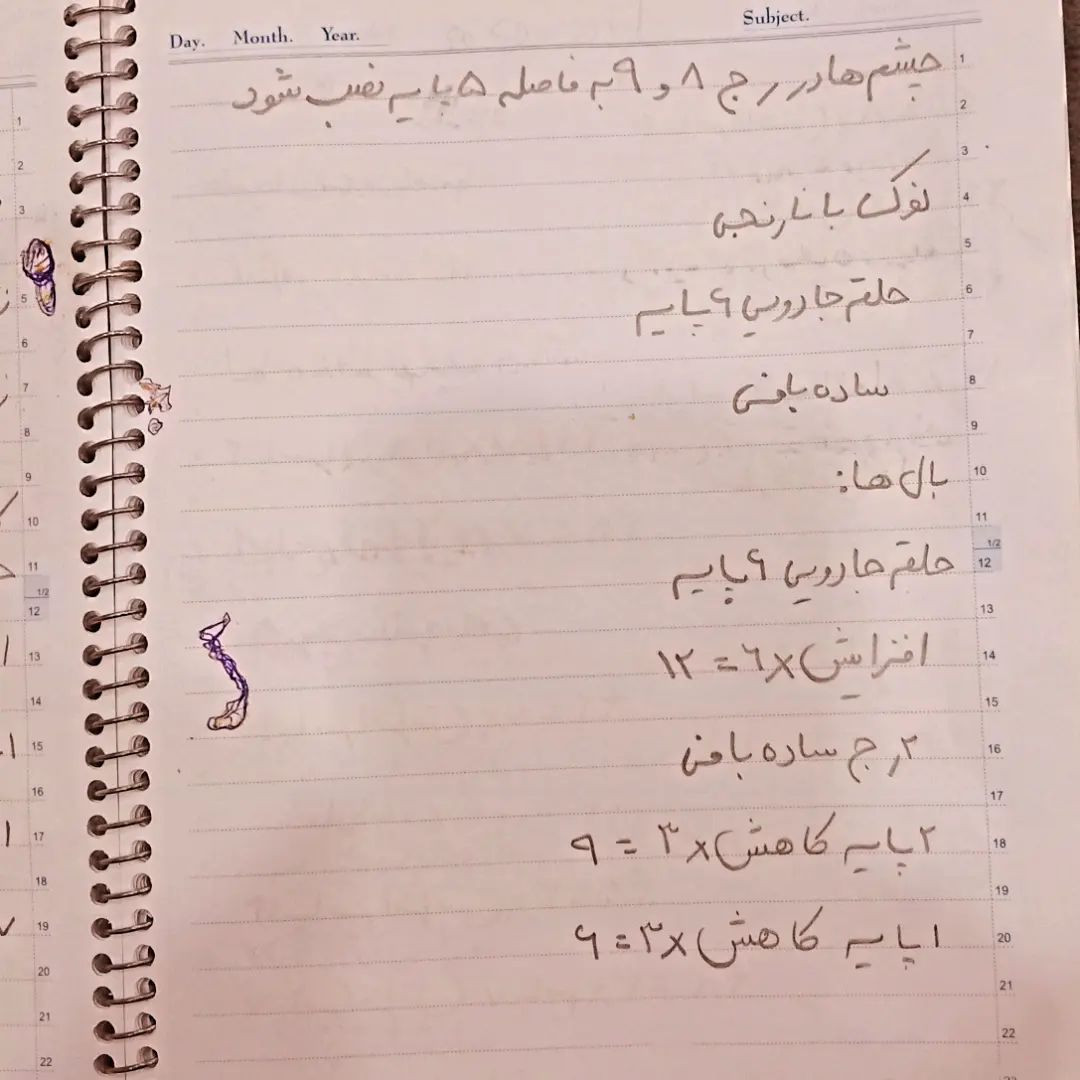 Day. Month. Year. Subject.
چشم ها در رج ۸ و ۹ به فاصله ۵ پایه نصب شود
نوک با نارنجی
حلقه جادویی ۶ پایه
ساده بافی
بال ها:
حلقه جادویی ۶ پایه
افزایش ×۶ = ۱۲
۲ رج ساده بافی
۲ پایه کاهش ×۳ = ۹
۱ پایه کاهش ×۳ = ۶